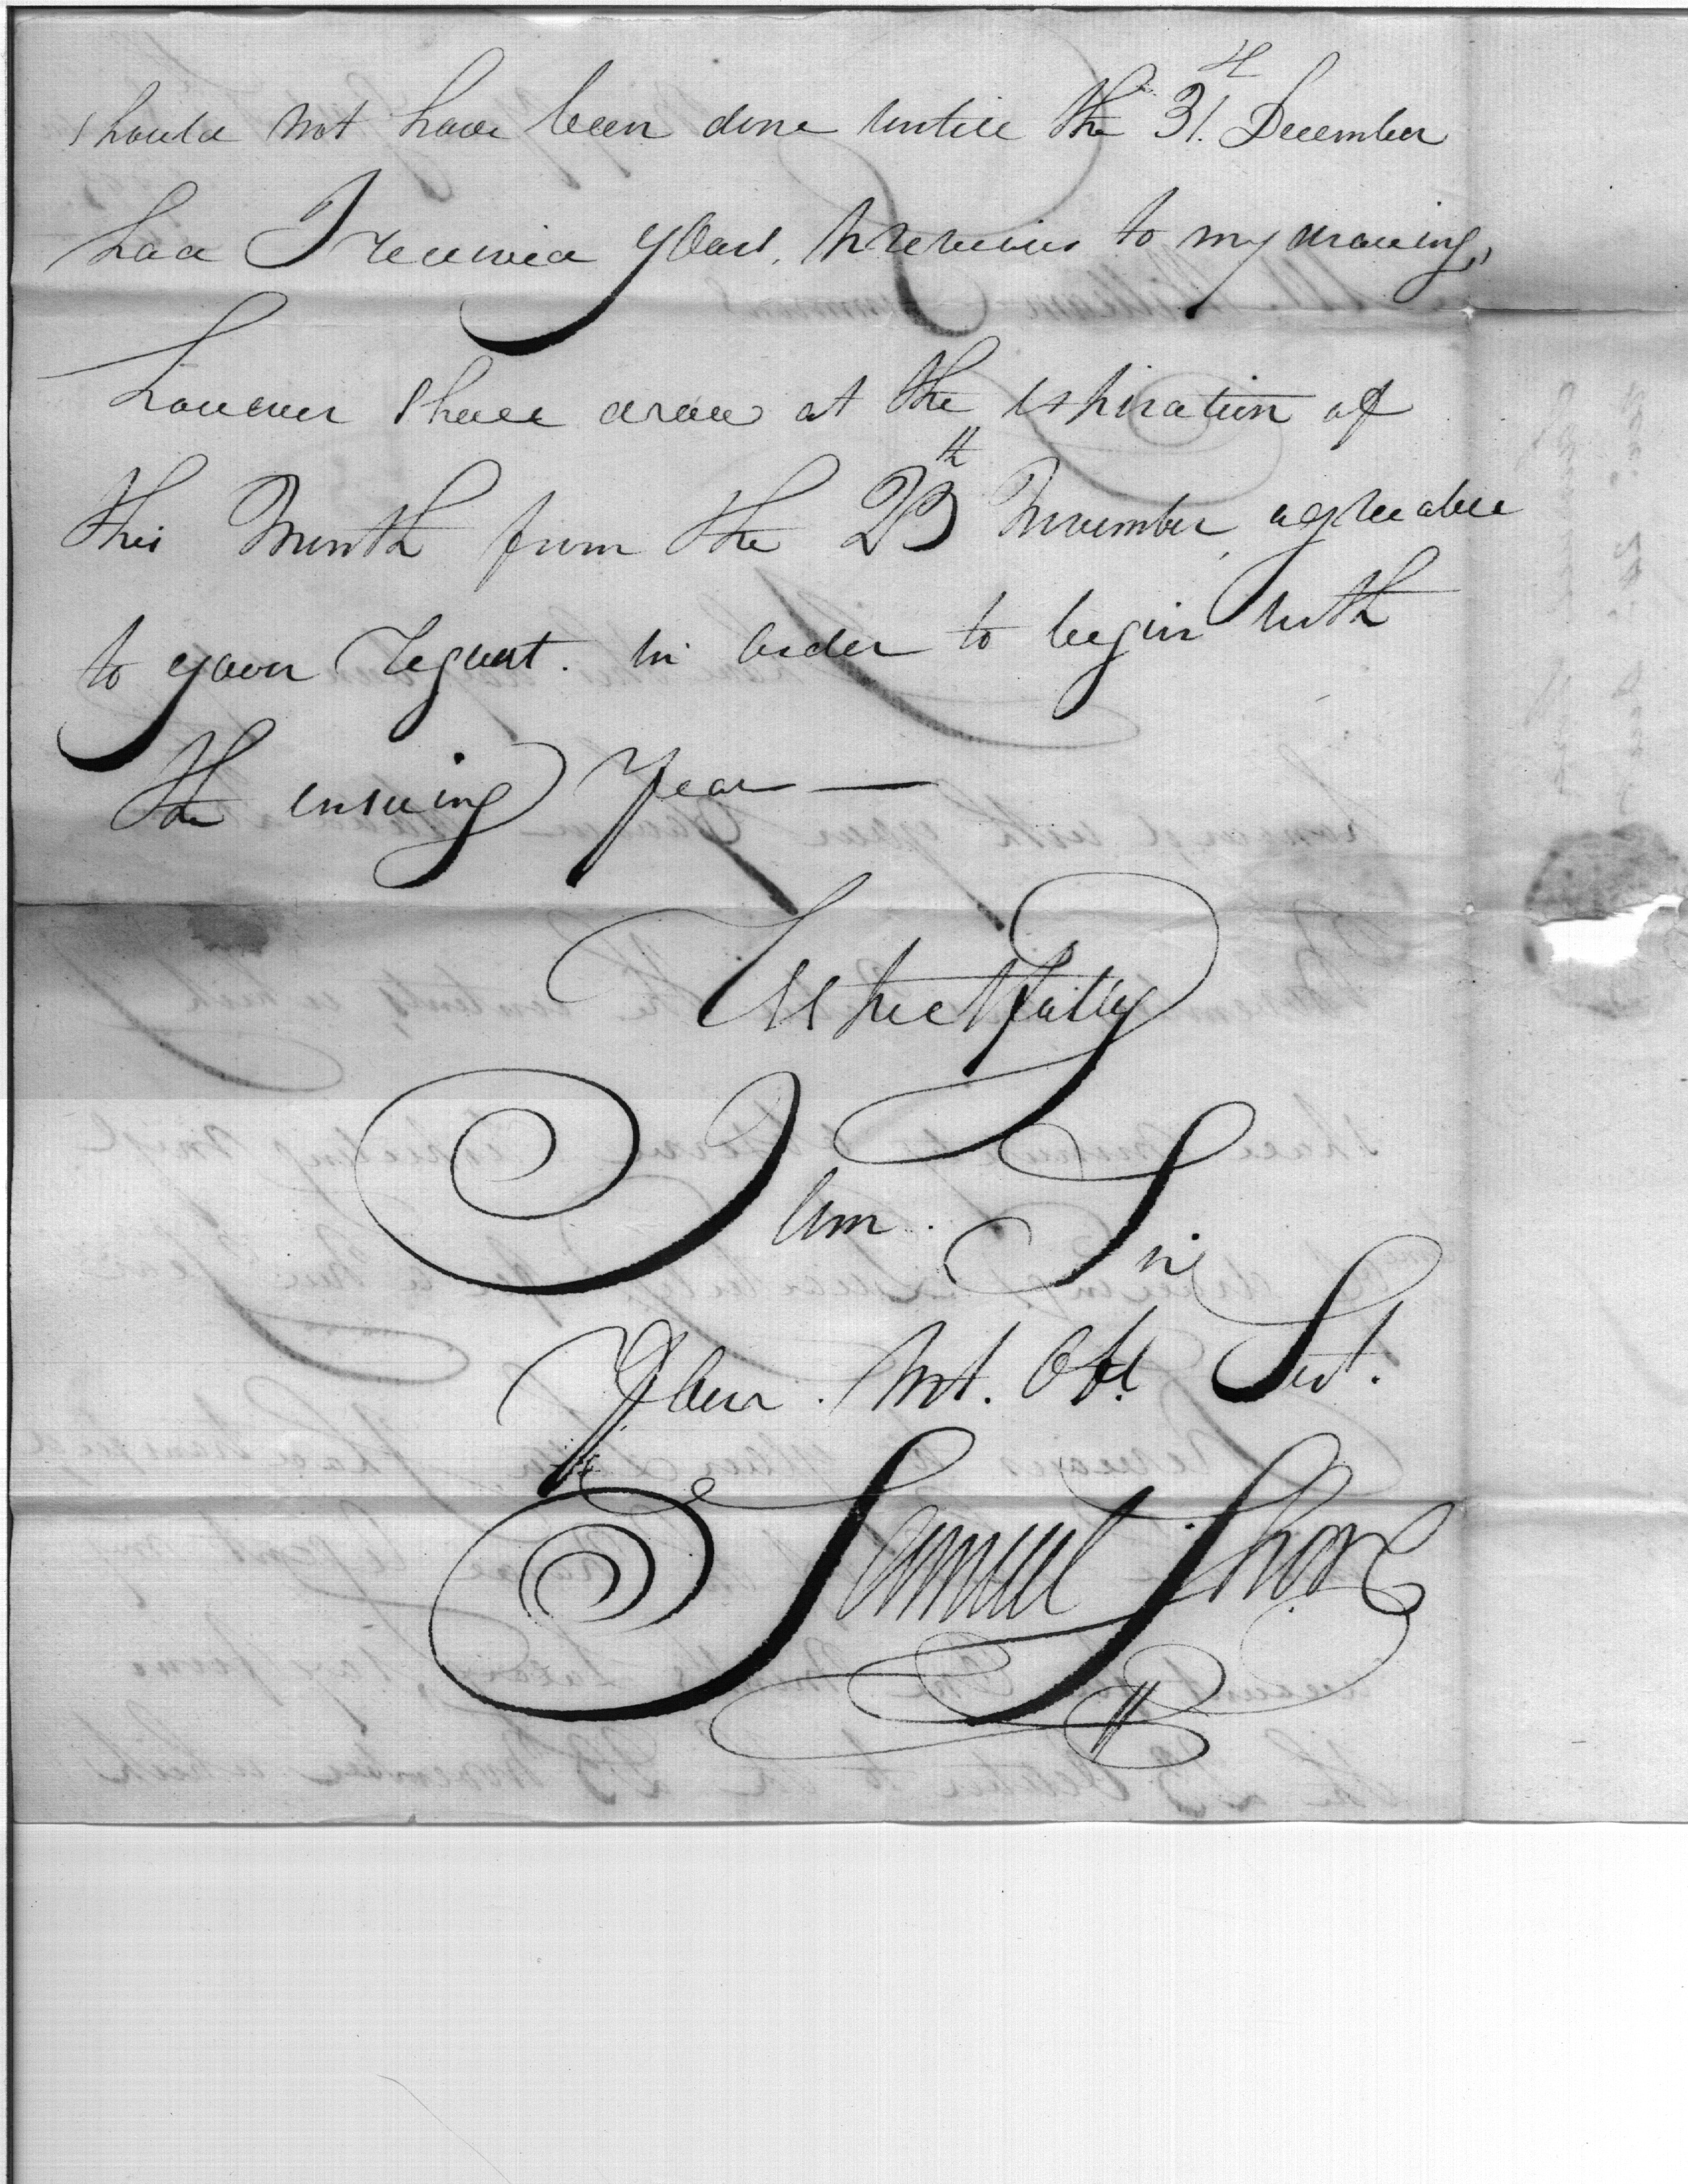 should not have been done untill the 31.st December
had I received yours, previous to my drawing,
however shall draw at the expiration of
this Month from the 23th November agreeable
to your request. in order to begin with
the ensuing year —
Respectfully
I am. Sir
Your. Mt. Obt. Sert.
Samuel Shore